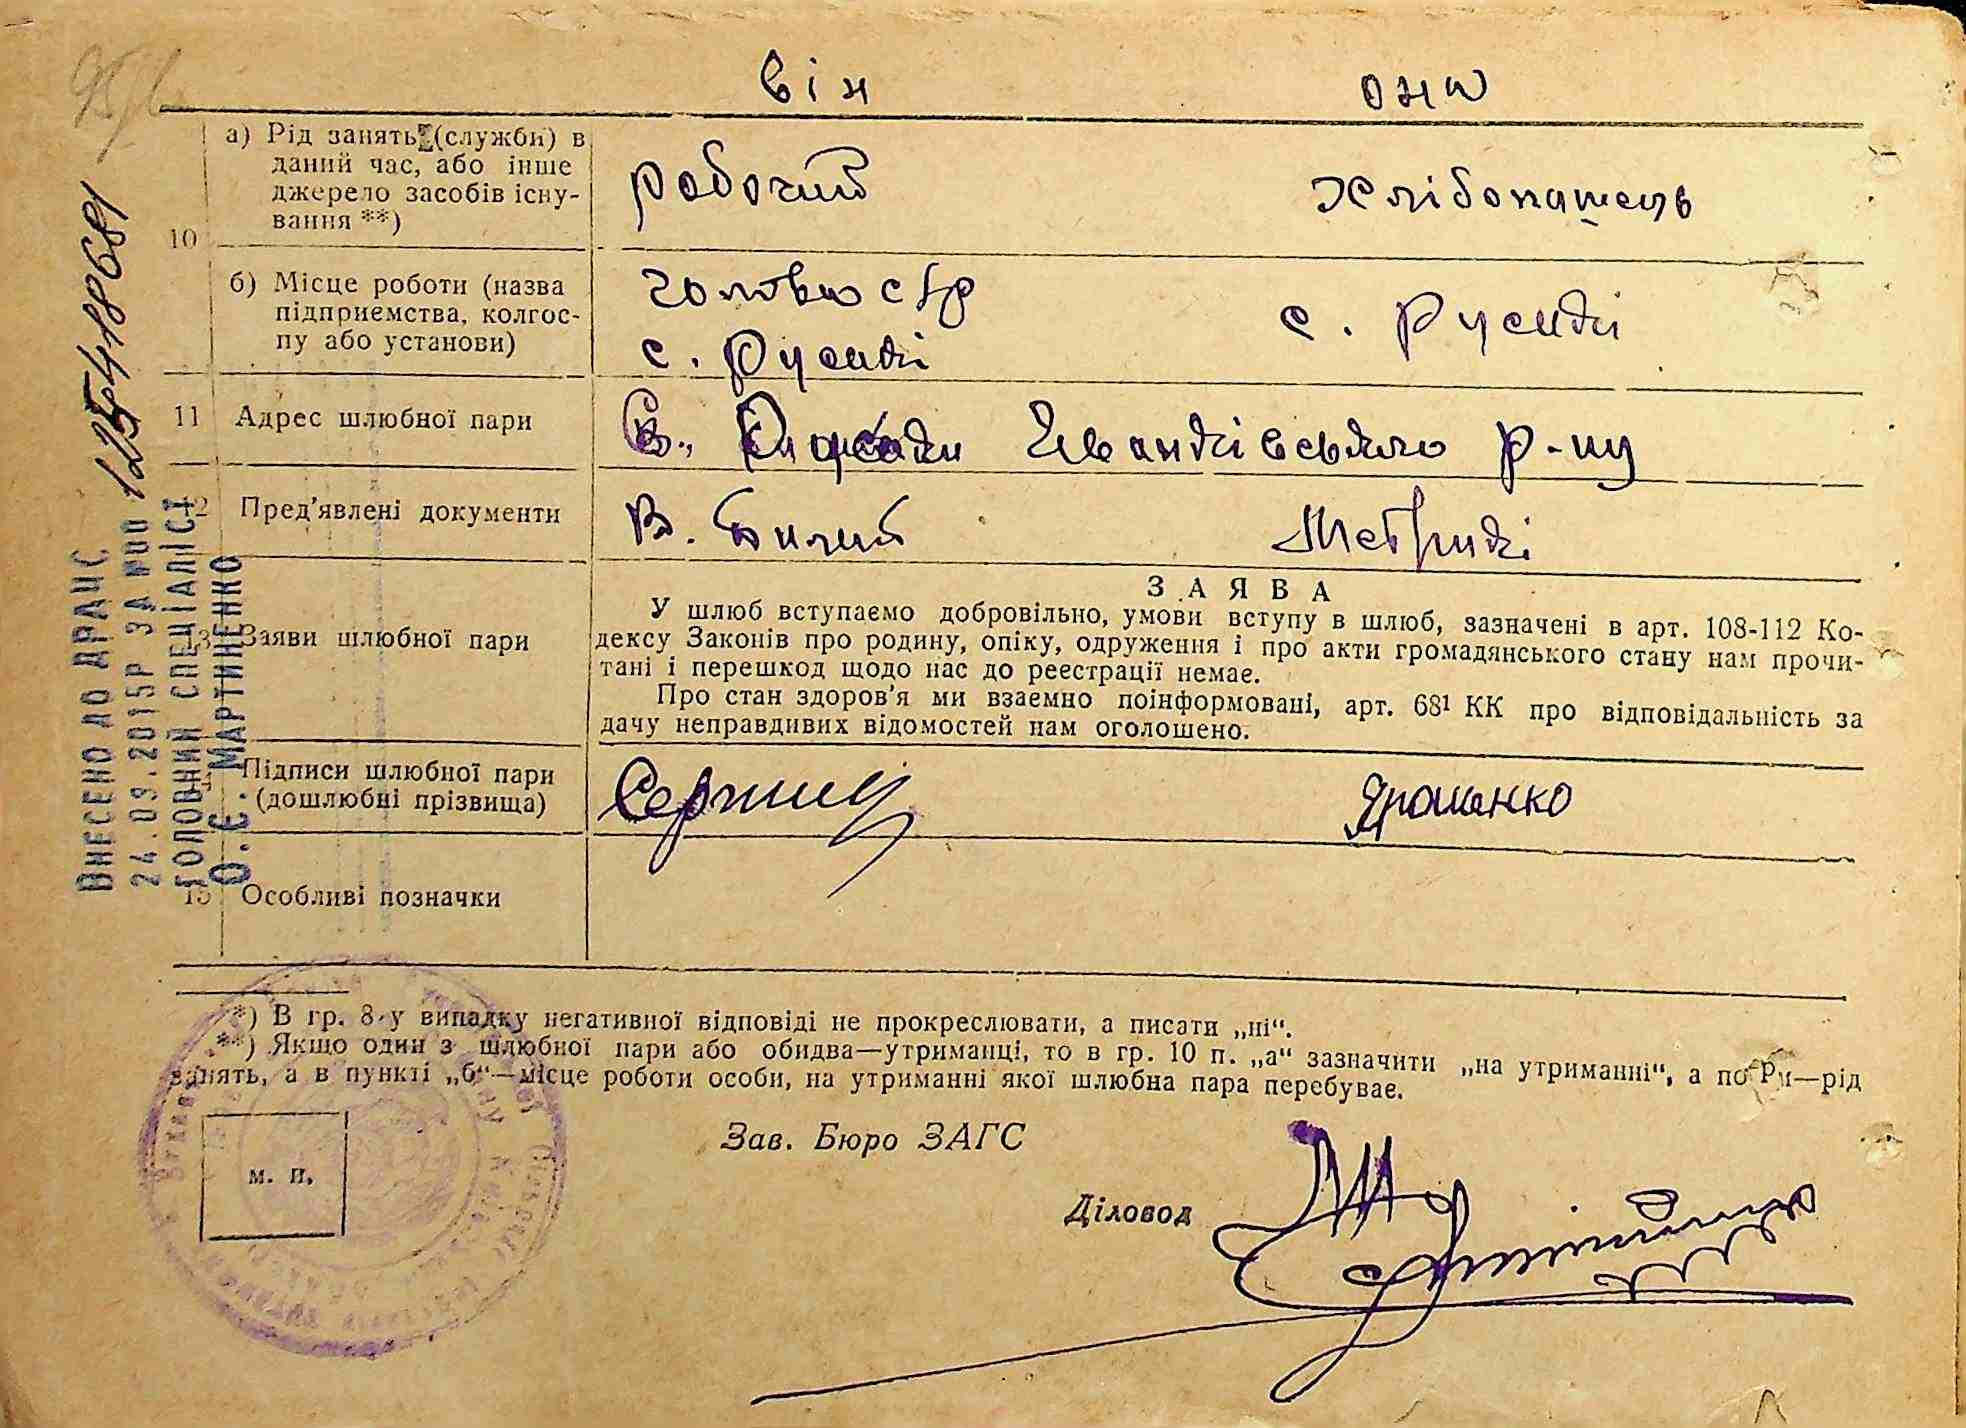 він она
а) Рід занять (служби) в
даний час, або інше
джерело засобів існу-
вання **)
робочий Хлібопашець
10
б) Місце роботи (назва
підприємства, колгос-
пу або установи)
с. Русаки
с. Русаки
11 Адрес шлюбної пари
Іванківського р-ну
12 Пред'явлені документи
В. Билет Метрики
13 Заяви шлюбної пари
ЗАЯВА
У шлюб вступаємо добровільно, умови вступу в шлюб, зазначені в арт. 108-112 Ко-
дексу Законів про родину, опіку, одруження і про акти громадянського стану нам прочи-
тані і перешкод щодо нас до реєстрації немає.
Про стан здоров'я ми взаємно поінформовані, арт. 68¹ КК про відповідальність за
дачу неправдивих відомостей нам оголошено.
Підписи шлюбної пари
(дошлюбні прізвища)
Ярошенко
15 Особливі позначки
*) В гр. 8 у випадку негативної відповіді не прокреслювати, а писати „ні“.
**) Якщо один з шлюбної пари або обидва—утриманці, то в гр. 10 п. „а“ зазначити „на утриманні“, а поруч—рід
занять, а в пункті „б“—місце роботи особи, на утриманні якої шлюбна пара перебуває.
Зав. Бюро ЗАГС
м. п.
Діловод
ВНЕСЕНО ДО ДРАЦС
24.03.2015Р ЗА №00 125418681
ГОЛОВНИЙ СПЕЦІАЛІСТ
О.Є. МАРТИНЕНКО